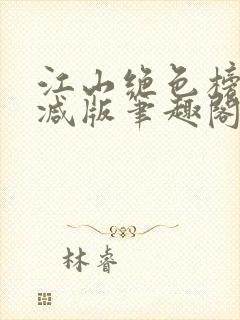 江山绝色榜
减版笔趣阁
林睿